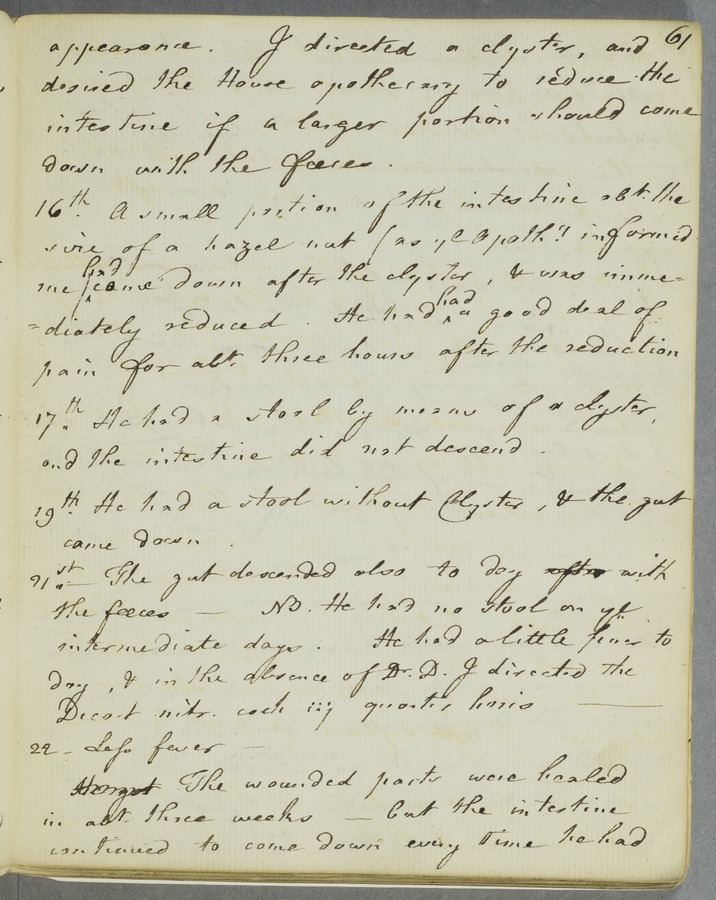 61
appearance. I directed a clyster, and
desired the House apothecary to reduce the
intestine if a larger portion should come
down with the fæces.
16th. A small portion of the intestine abt. the
size of a hazel nut (as ye Apoth.y informed
me) had came down after the clyster, & was imme=
=diately reduced. He had had a good deal of
pain for abt. three hours after the reduction
17th. He had a stool by means of a clyster,
and the intestine did not descend.
19th. He had a stool without Clyster, & the gut
came down.
21st. — The gut descended also to day after with
the fæces — NB. He had no stool on ye
intermediate days. He had a little fever to
day, & in the absence of Dr. D. I directed the
Decoct nitr. coch iij quartis horis —
22 — Less fever —
The wounded parts were healed
in abt. three weeks — but the intestine
continued to come down every time he had